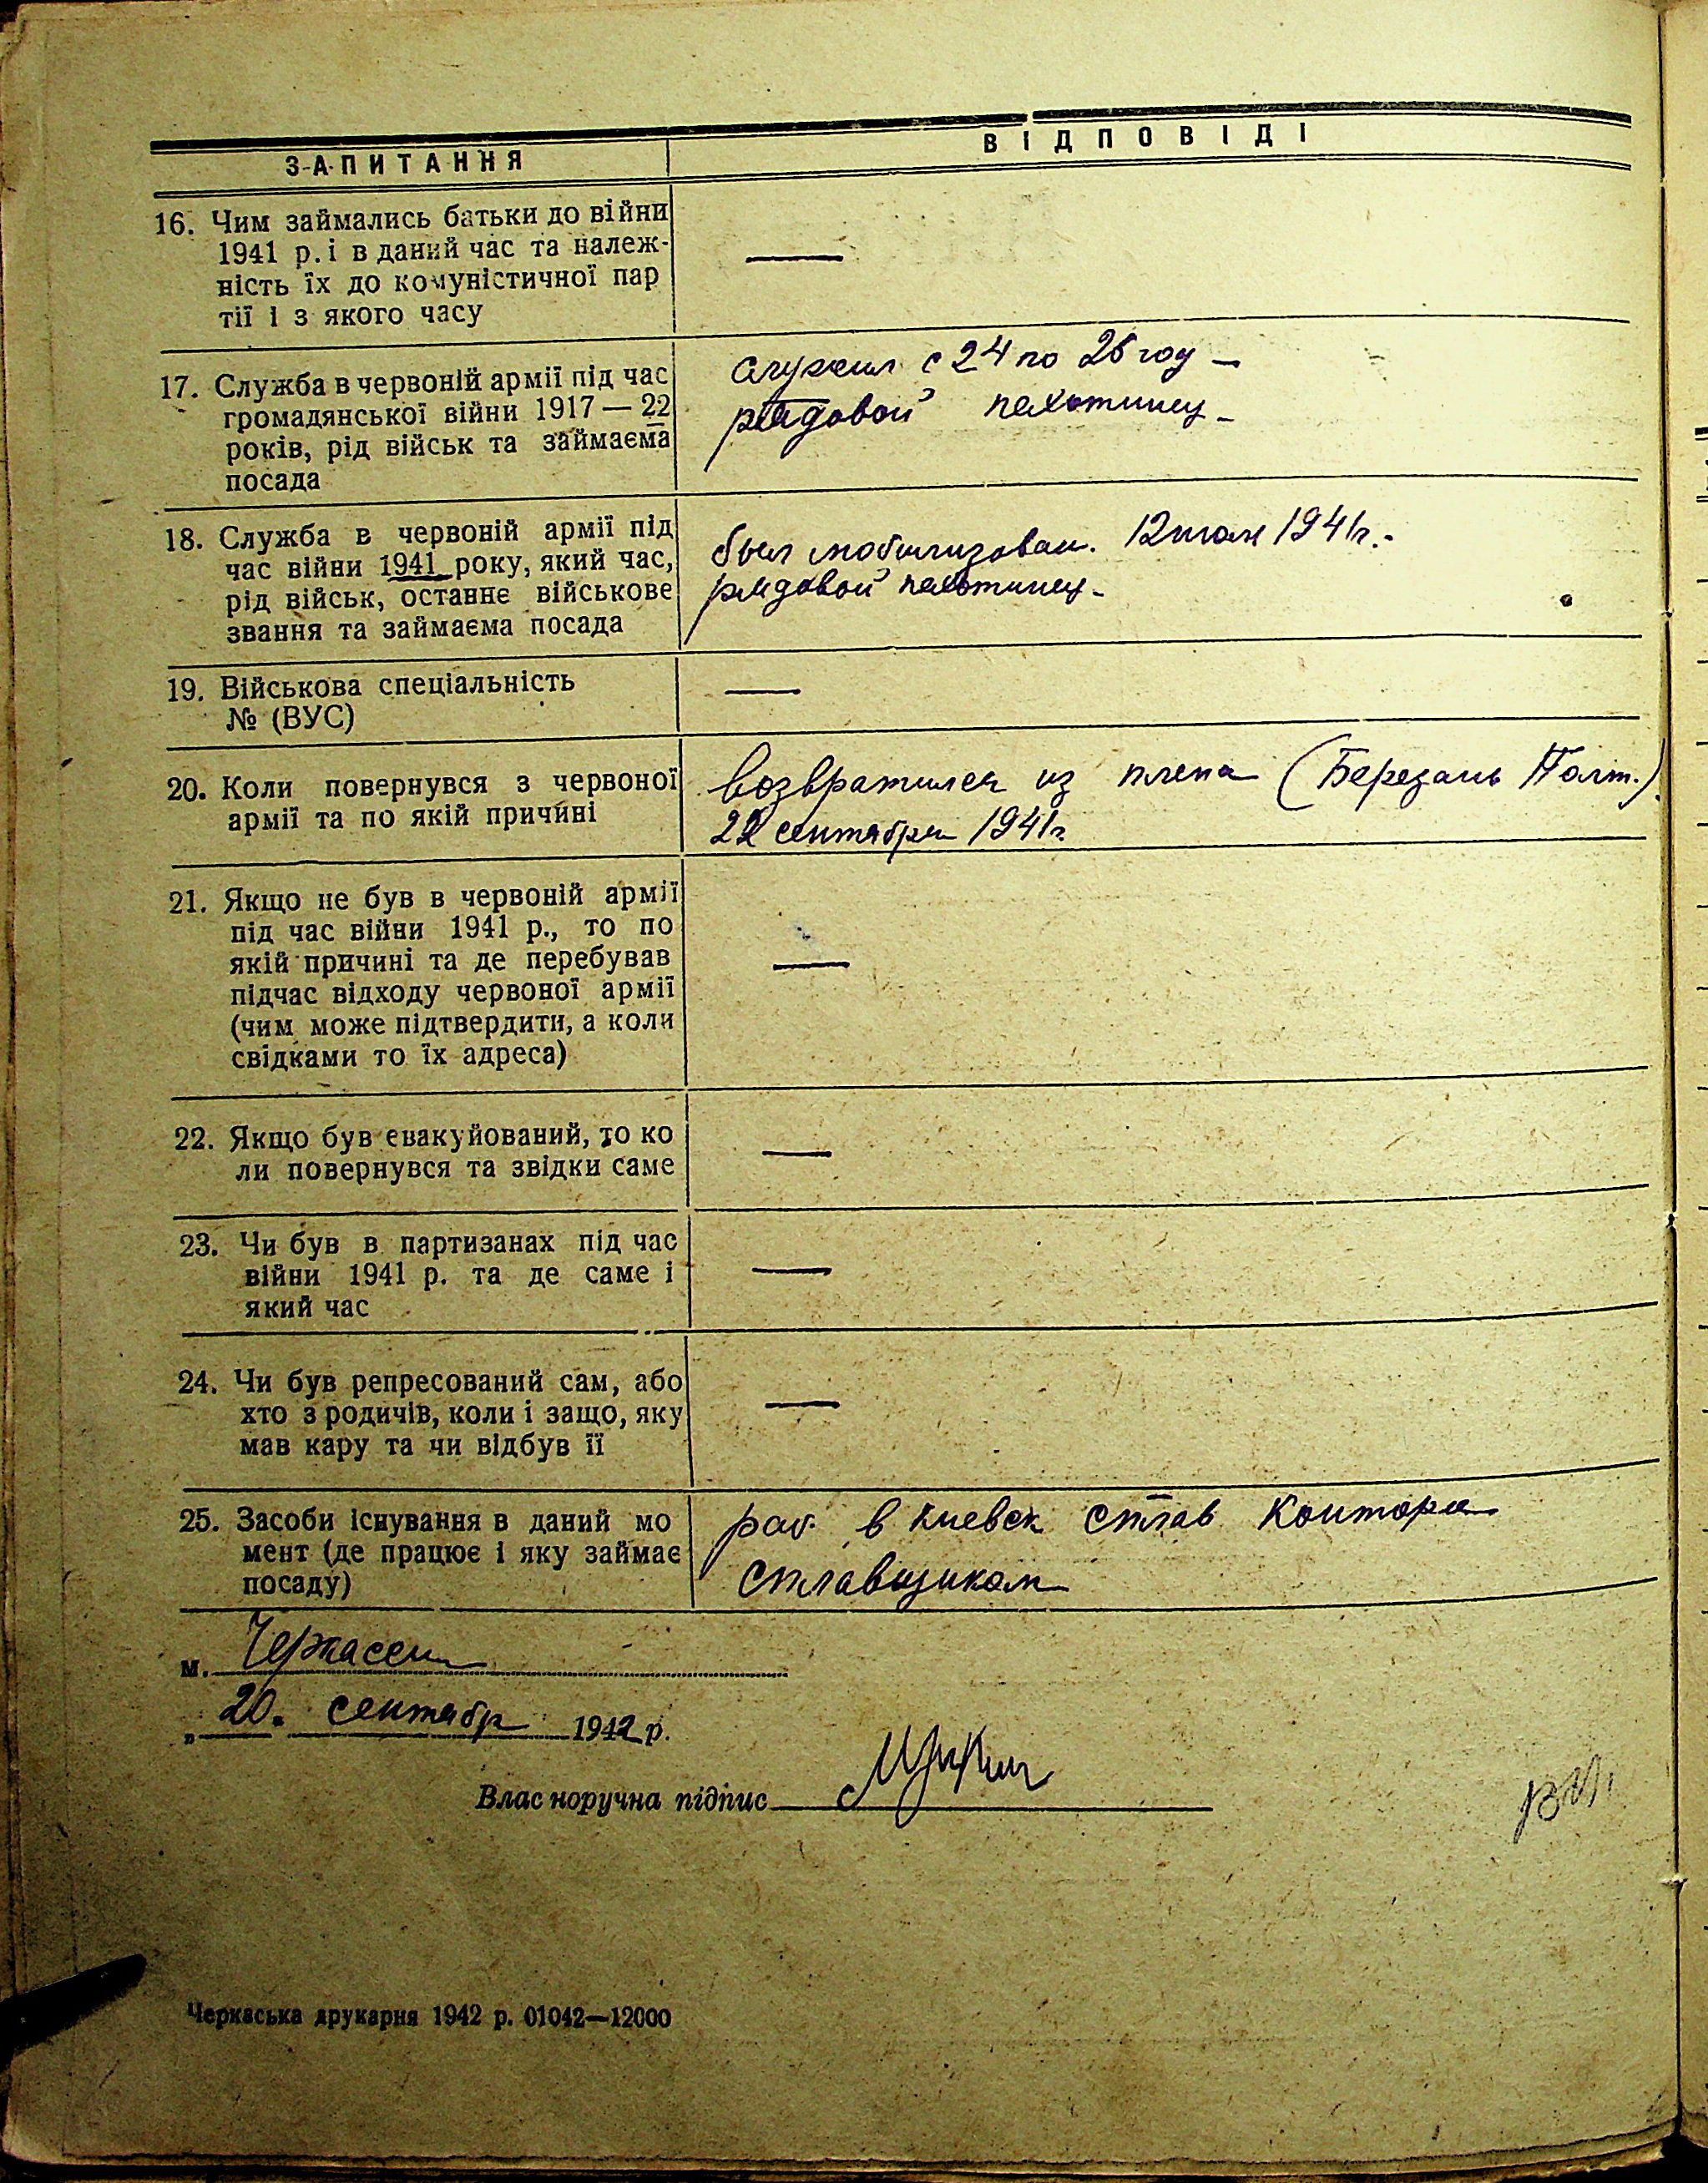 ЗАПИТАННЯ
ВІДПОВІДІ
16. Чим займались батьки до війни
1941 р. і в даний час та належ-
ність їх до комуністичної пар
тії і з якого часу
—
17. Служба в червоній армії під час
громадянської війни 1917—22
років, рід військ та займаєма
посада
служил с 24 по 26 году —
рядовой пехотинец -
18. Служба в червоній армії під
час війни 1941 року, який час,
рід військ, останнє військове
звання та займаєма посада
был мобилизован. 12 июля 1941г.-
рядовой пехотинец -
19. Військова спеціальність
№ (ВУС)
—
20. Коли повернувся з червоної
армії та по якій причині
возвратился из плена (Березань Полт.)
22 сентября 1941г.
21. Якщо не був в червоній армії
під час війни 1941 р., то по
якій причині та де перебував
підчас відходу червоної армії
(чим може підтвердити, а коли
свідками то їх адреса)
—
22. Якщо був евакуйований, то ко
ли повернувся та звідки саме
—
23. Чи був в партизанах під час
війни 1941 р. та де саме і
який час
—
24. Чи був репресований сам, або
хто з родичів, коли і защо, яку
мав кару та чи відбув її
—
25. Засоби існування в даний мо
мент (де працює і яку займає
посаду)
раб. в Киевск Сплав Контора
Сплавщиком
м. Черкассы
„ 20. сентябр 1942 р.
Влас норучна підпис
Черкаська друкарня 1942 р. 01042—12000